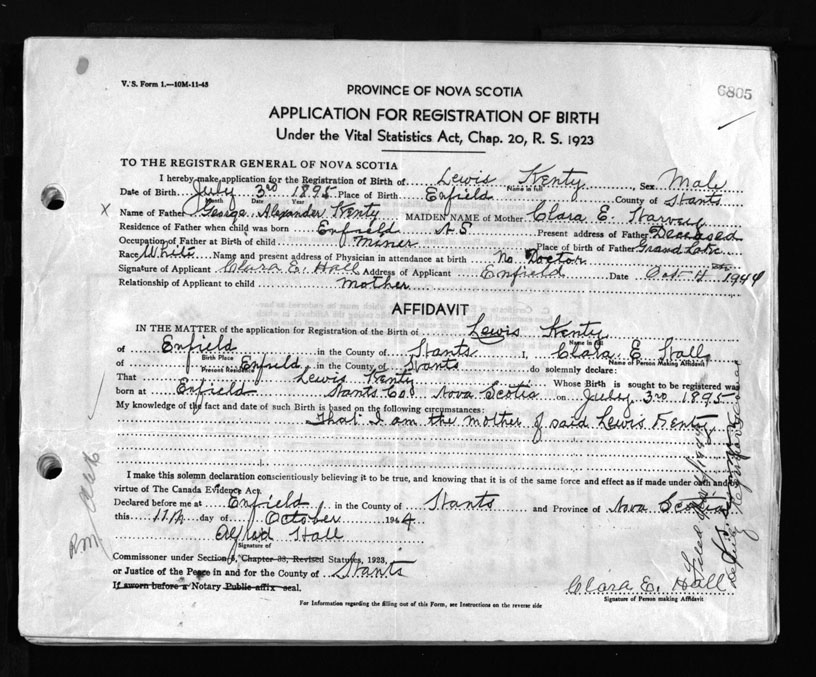 V. S. Form 1.—10M-11-43
6805
PROVINCE OF NOVA SCOTIA
APPLICATION FOR REGISTRATION OF BIRTH
Under the Vital Statistics Act, Chap. 20, R. S. 1923
TO THE REGISTRAR GENERAL OF NOVA SCOTIA
I hereby make application for the Registration of Birth of Lewis Kenty, Sex Male
Name in full
Date of Birth July 3rd 1895 Place of Birth Enfield County of Hants
Month Date Year
X Name of Father George Alexander Kenty MAIDEN NAME of Mother Clara E. Harvey
Residence of Father when child was born Enfield N.S. Present address of Father Deceased
Occupation of Father at Birth of child Miner Place of birth of Father Grand Lake
Race White Name and present address of Physician in attendance at birth No Doctor
Signature of Applicant Clara E. Hall Address of Applicant Enfield Date Oct 11 1944
Relationship of Applicant to child mother
AFFIDAVIT
IN THE MATTER of the application for Registration of the Birth of Lewis Kenty
Name in full
of Enfield in the County of Hants I, Clara E Hall
Birth Place Name of Person Making Affidavit
of Enfield in the County of Hants do solemnly declare:
Present Residence
That Lewis Kenty Whose Birth is sought to be registered was
born at Enfield Hants Co. Nova Scotia on July 3rd 1895
My knowledge of the fact and date of such Birth is based on the following circumstances:
That I am the mother of said Lewis Kenty
I make this solemn declaration conscientiously believing it to be true, and knowing that it is of the same force and effect as if made under oath and
virtue of The Canada Evidence Act.
Declared before me at Enfield in the County of Hants and Province of Nova Scotia
this 11th day of October 1944
Alfred Hall
Signature of
Commissoner under Section 5, Chapter 33, Revised Statutes, 1923,
or Justice of the Peace in and for the County of Hants
If sworn before a Notary Public affix seal.
Clara E. Hall
Signature of Person making Affidavit
For Information regarding the filling out of this Form, see Instructions on the reverse side